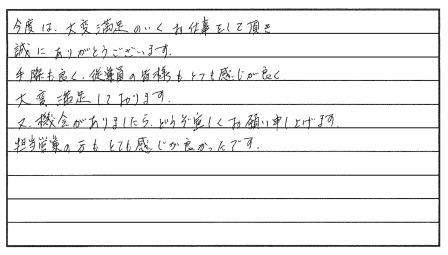 今度は、大変満足のいくお仕事をして頂き
誠にありがとうございます。
手際も良く、従業員の皆様もとても感じが良く
大変満足しております。
又、機会がありましたら、どうぞ宜しくお願い申し上げます。
担当営業の方もとても感じが良かったです。